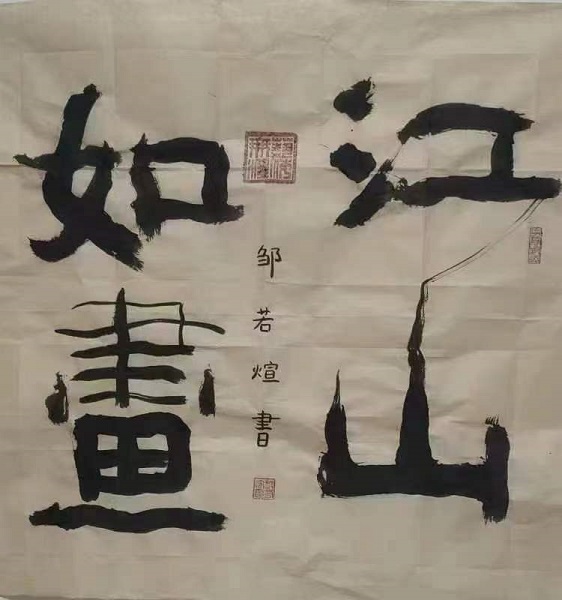 江山
如畫
邹若煊書